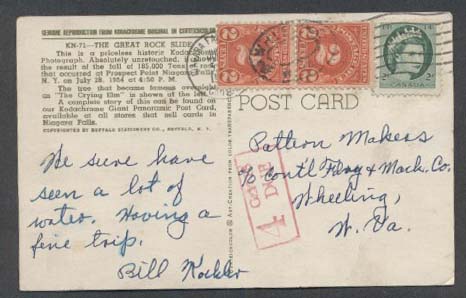 GENUINE REPRODUCTION FROM KODACHROME ORIGINAL IN CURTEICHCOLOR
KN-71—THE GREAT ROCK SLIDE
This is a priceless historic Kodachrome
Photograph. Absolutely untouched, it shows
the result of the fall of 185,000 Tons of rock
that occurred at Prospect Point Niagara Falls,
N. Y. on July 28, 1954 at 4:50 P. M.
The tree that became famous overnight
as "The Crying Elm" is shown at the left.
A complete story of this can be found on
our Kodachrome Giant Panoramic Post Card,
available at all stores that sell cards in
Niagara Falls.
COPYRIGHTED BY BUFFALO STATIONERY CO., BUFFALO, N. Y.
We sure have
seen a lot of
water. Having a
fine trip.
Bill
2
2
CANADA
POST CARD
4 CENTS
DUE
Pattern Makers
c/o Cont'l Fdry & Mach. Co.
Wheeling,
W. Va.